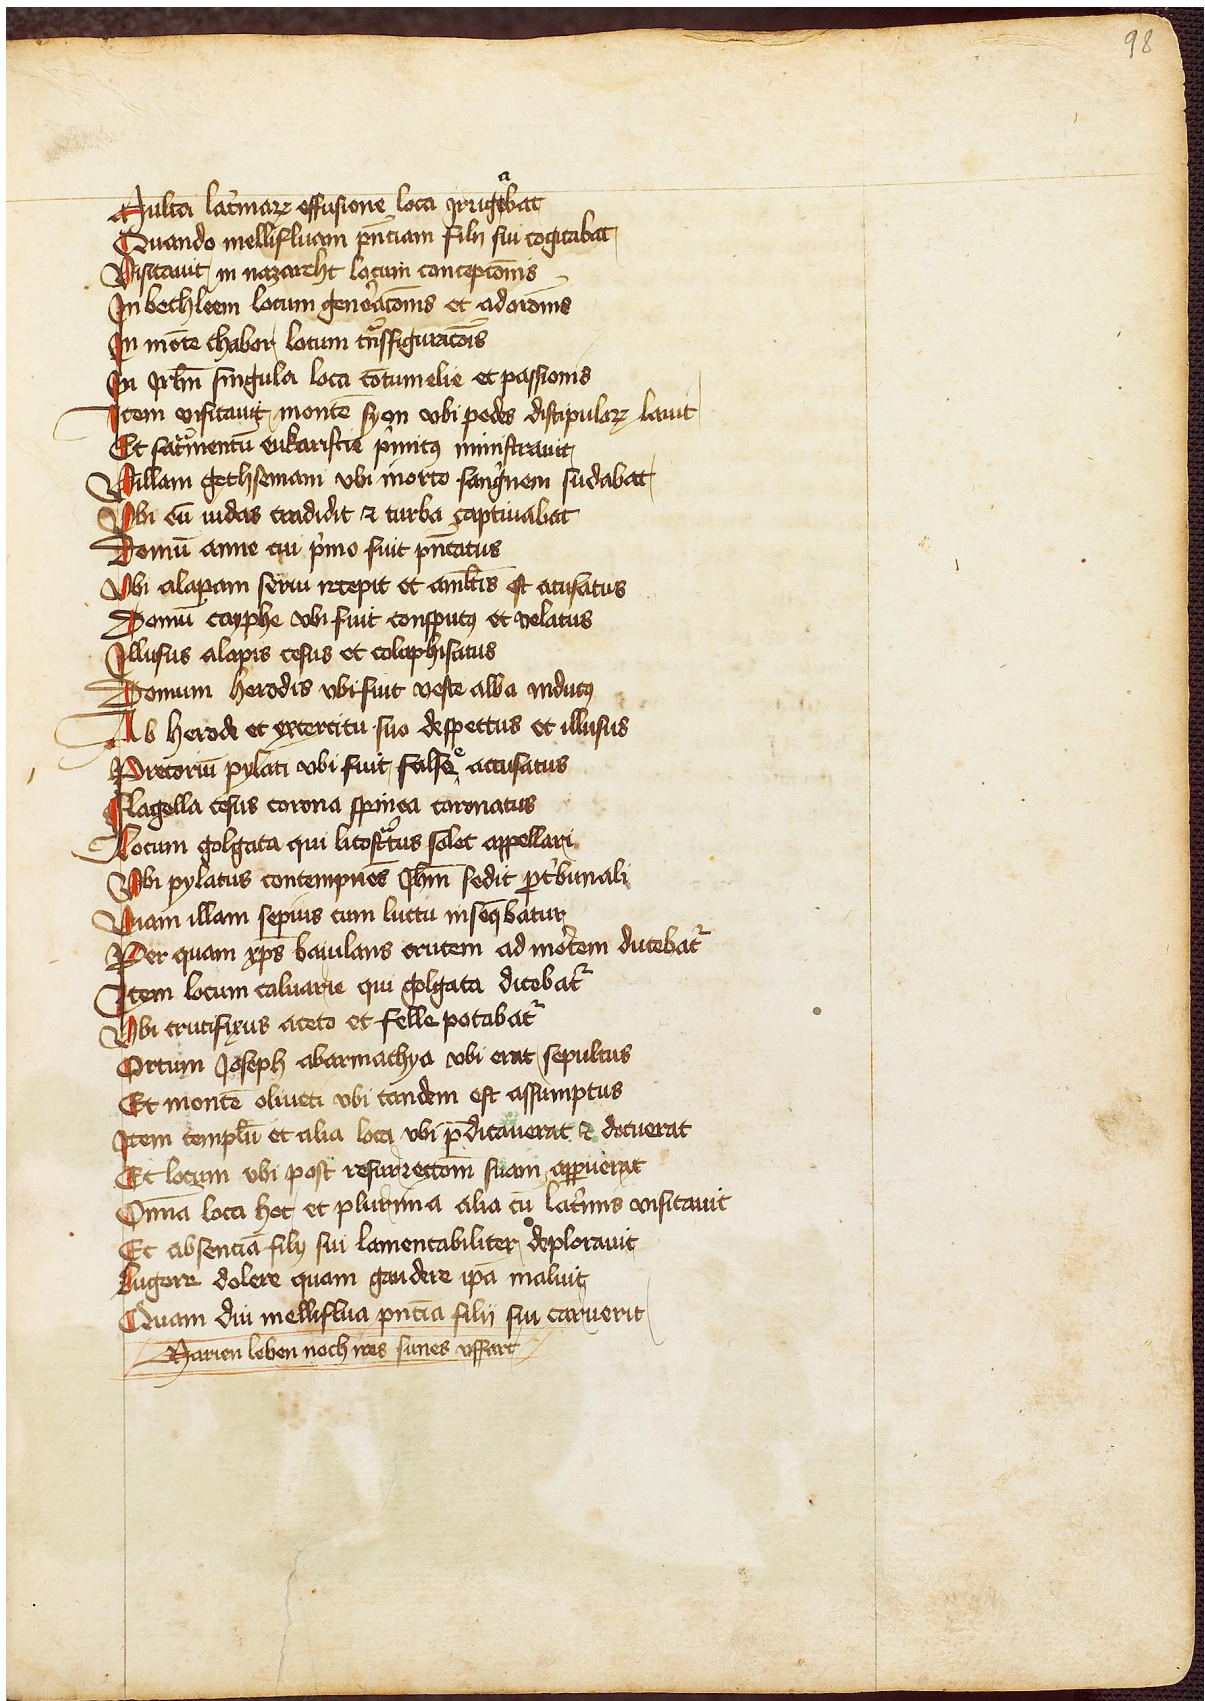 98
Multa lac̓maꝝ effusione loca irrigabat
Quando mellifluam pn̄ciam filij sui cogitabat
Visitauit in nazareht locum concepcōnis
In bethleem locum gen̓acōnis et adorōnis
In mōte thabor locum tnᵃsfiguracōis
In Jrlm̄ singula loca cōtumelie et passionis
Item visitauit montē syon vbi pedes discipuloꝝ lauit
Et sacᵃmentū eukaristie p̓mitꝰ ministrauit
Villam gethsemani vbi in orto sang̓nem sudabat
Vbi eū iudas tradidit ⁊ turba captiuabat
Domū anne cui p̓mo fuit pn̄tatus
Vbi alapam serui recepit et
est acusatus
Domū cayphe vbi fuit consputꝰ et velatus
Illusus alapis cesus et colaphisatus
Domum herodis vbi fuit veste alba indutꝰ
Ab herode et exercitu suo despectus et illusus
Pretoriū pylati vbi fuit false accusatus
Flagella cesus corona spinea coronatus
Locum golgata qui licosᵃtus solet appellari
Vbi pylatus contempnēs Jhm̄ sedit ꝓ t̓bunali
Viam illam sepius cum luctu inseq̄batur
Per quam xp̄s baiulans crucem ad mortem ducebat᷑
Item locum caluarie qui golgata dicebat᷑
Vbi crucifixus aceto et felle potabat᷑
Ortum Joseph abarmachya vbi erat sepultus
Et montē oliueti vbi tandem est assumptus
Item templū et alia loca vbi p̄dicauerat ⁊ docuerat
Et locum vbi post resurrexcōm suam apparuerat
Om̄ia loca hec et plurima alia cū lac̓mis visitauit
Et absenciā filij sui lamentabiliter deplorauit
Lugere dolere quam gaudere ipā maluit
Quam diu melliflua pn̄cia filij sui caruerit
Marien leben noch ires sunes vffart